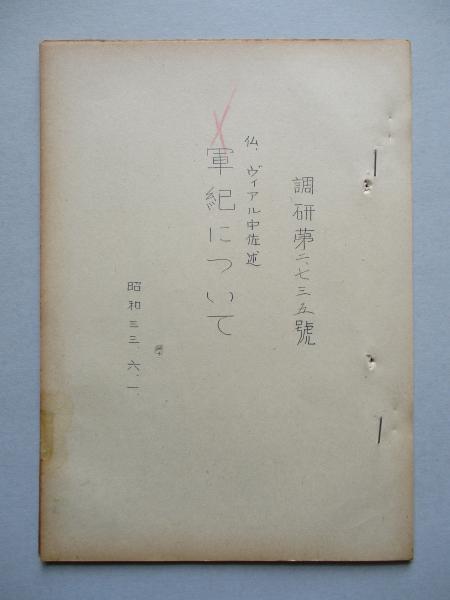 調研第二、七三五號
仏、ヴィアル中佐述
軍紀について
昭和三三、六、一